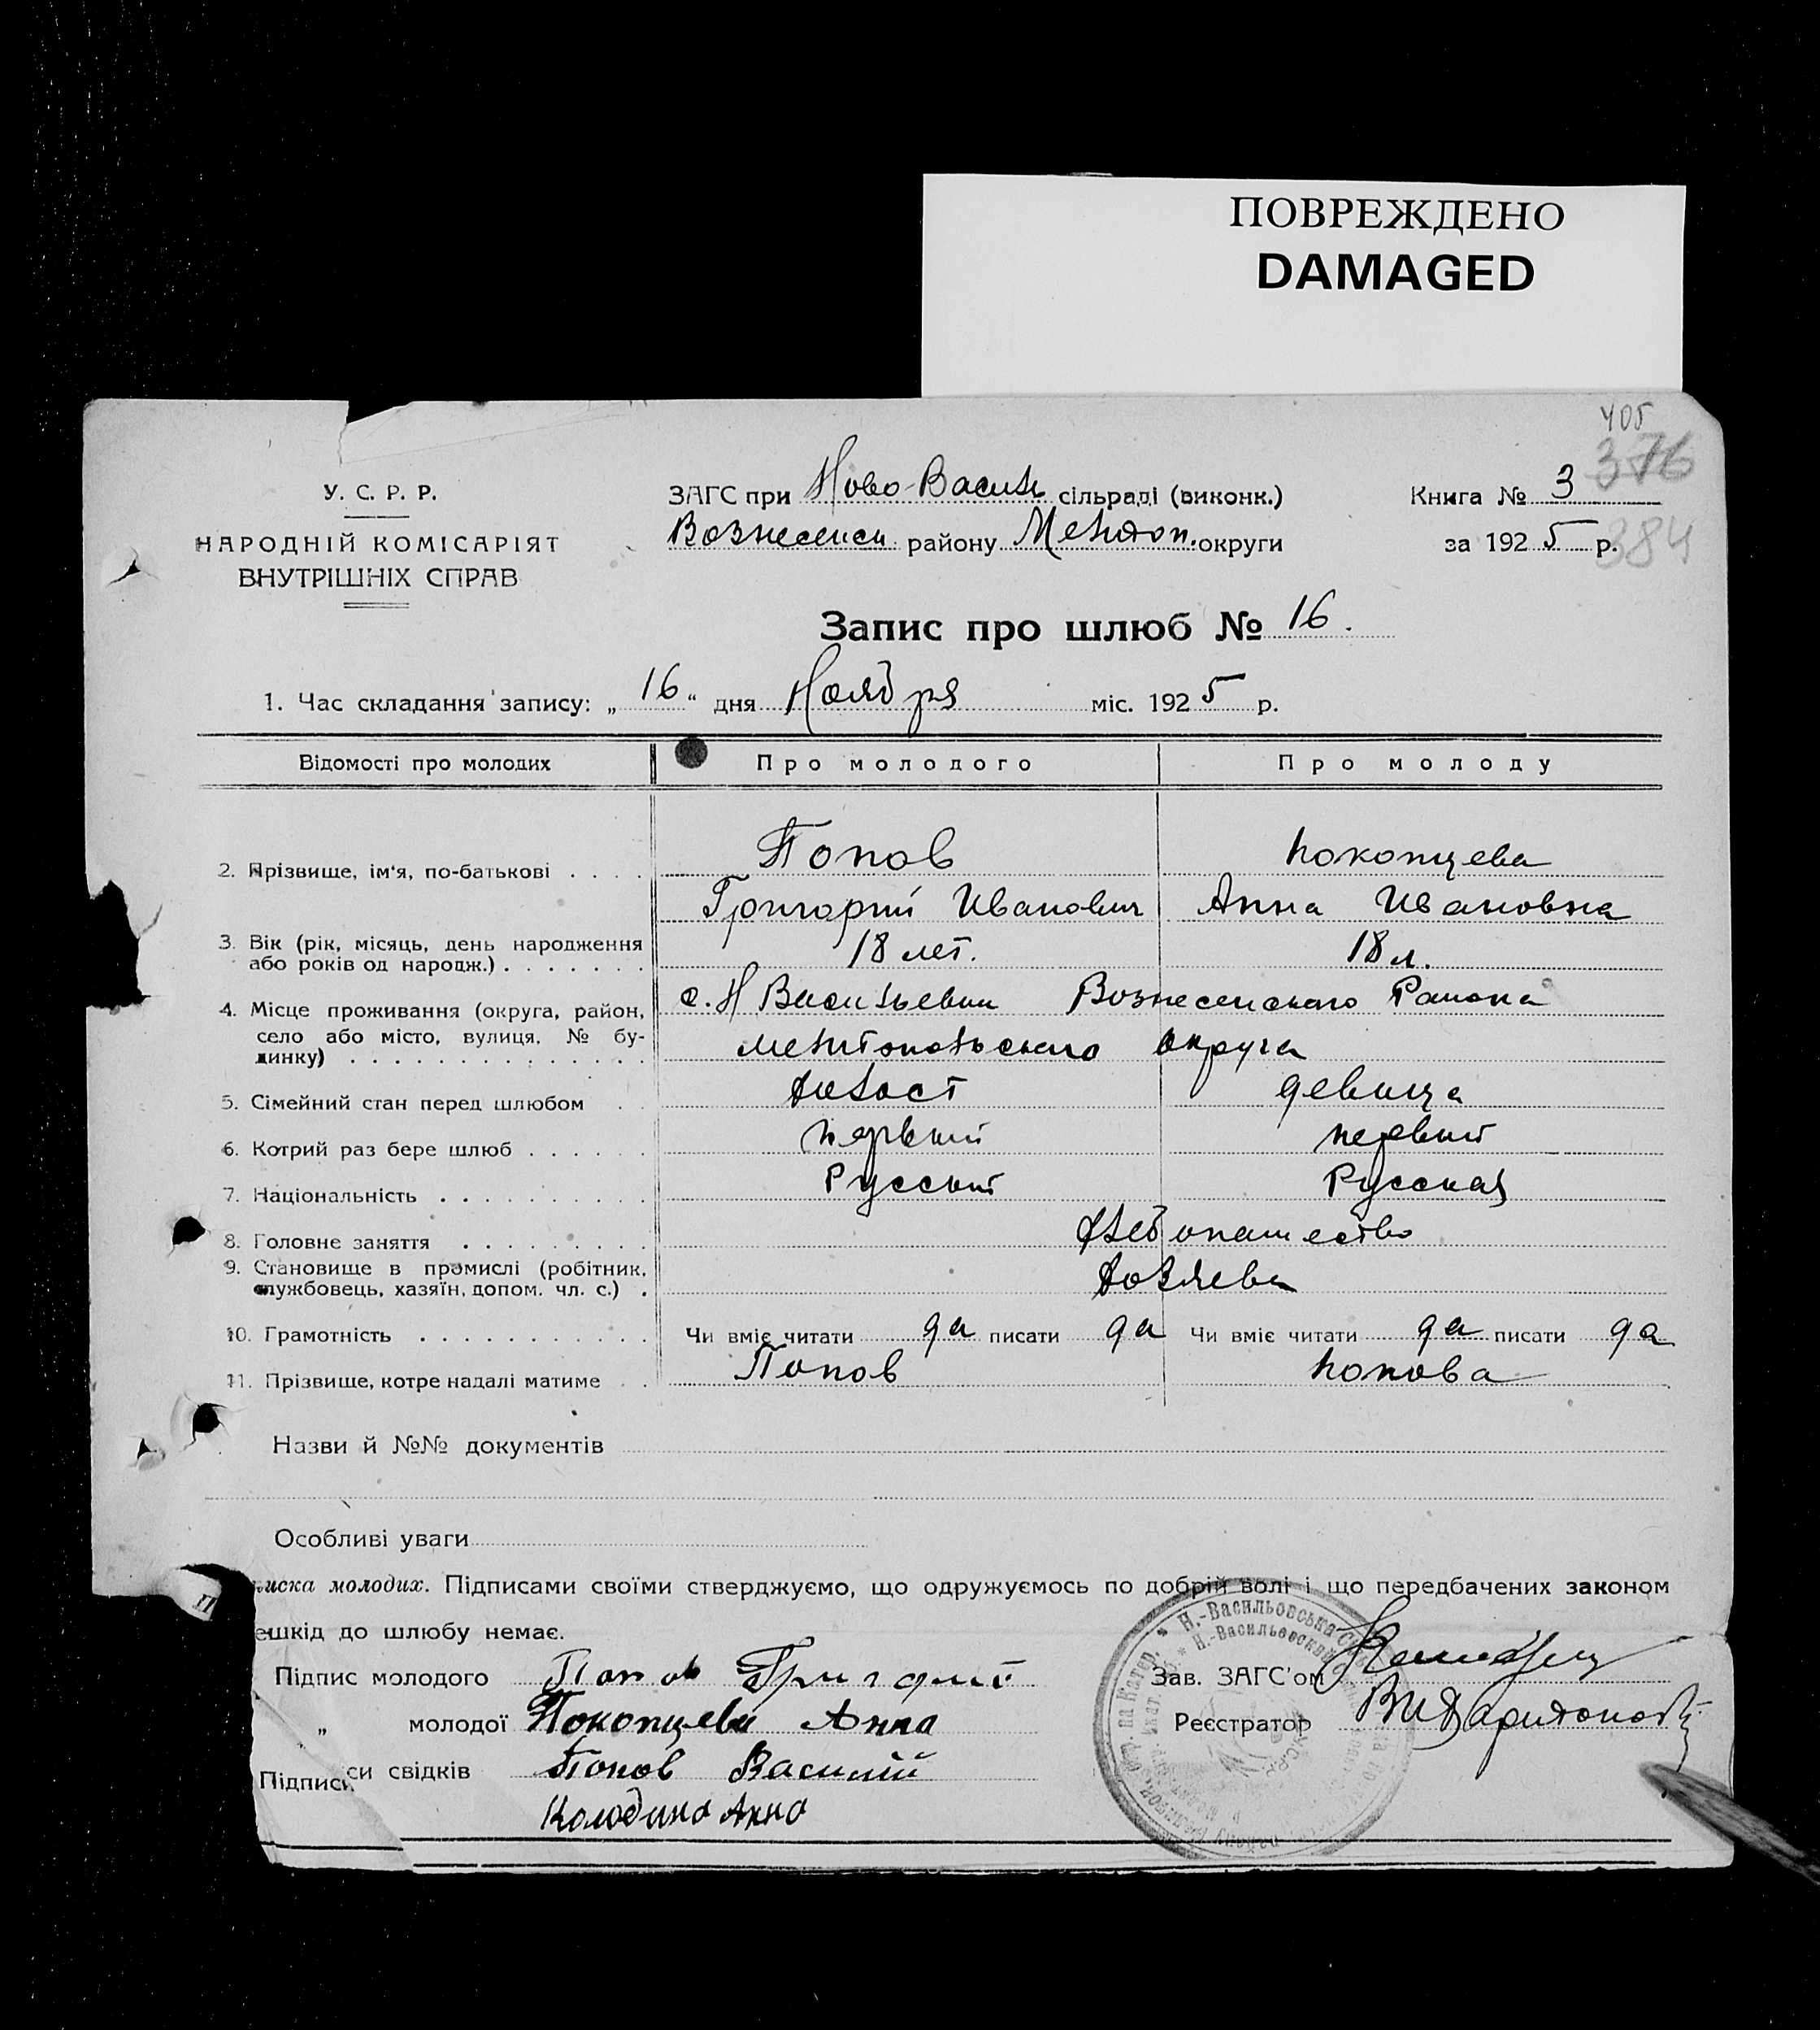 ПОВРЕЖДЕНО
DAMAGED
405
376
384
У. С. Р. Р.
НАРОДНІЙ КОМІСАРІЯТ
ВНУТРІШНІХ СПРАВ
ЗАГС при Ново-Василь сільраді (виконк.)
Вознесенск району Мелітоп. округи
Книга № 3
за 1925 р.
Запис про шлюб № 16.
1. Час складання запису: „16“ дня Ноября міс. 1925 р.
Відомості про молодих Про молодого Про молоду
2. Прізвище, ім'я, по-батькові . . . . Попов Покопцева
Григорий Иванович Анна Ивановна
3. Вік (рік, місяць, день народження
або років од народж.) . . . . . . . 18 лет. 18 л.
4. Місце проживання (округа, район,
село або місто, вулиця, № бу-
динку) . . . . . . . . . . . . . .
с. Н Васильевки Вознесенского Района
Мелитопольского округа
5. Сімейний стан перед шлюбом . . Холост девица
6. Котрий раз бере шлюб . . . . . . первый первый
7. Національність . . . . . . . . . . Русский Русская
8. Головне заняття . . . . . . . . . Хлебопашество
9. Становище в промислі (робітник,
службовець, хазяїн, допом. чл. с.) . Хозяева
10. Грамотність . . . . . . . . . . . Чи вміє читати да писати да Чи вміє читати да писати да
11. Прізвище, котре надалі матиме . . Попов Попова
Назви й №№ документів
Особливі уваги
П
иска молодих. Підписами своїми стверджуємо, що одружуємось по добрій волі і що передбачених законом
ешкід до шлюбу немає.
Підпис молодого Попов Григорий
„ молодої Покопцева Анна
Підписи свідків Попов Василий
Колодина Анна
Зав. ЗАГС'ом
Реєстратор ВИХаритонов
Н.-Васильовська
Н.-Васильевский